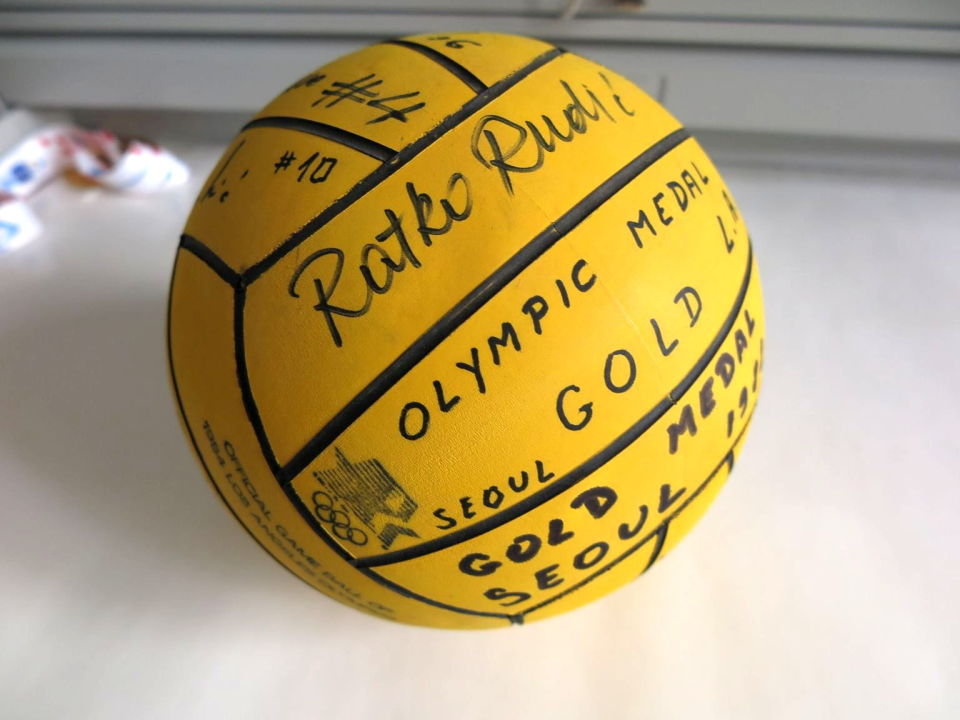 16
#4
#10
Ratko Rudić
OLYMPIC MEDAL
L.A
GOLD
SEOUL
GOLD MEDAL
SEOUL
OFFICIAL GAME BALL OF
1984 LOS ANGELES